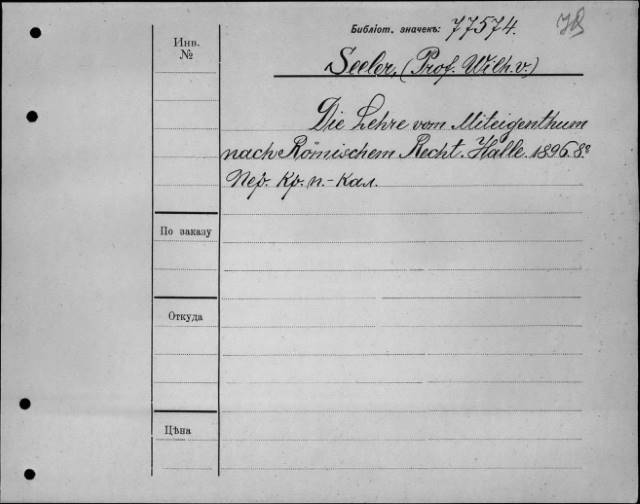 Библіот. значекъ: 77574.
Инв.
№
Seeler, (Prof. Wilh. v.)
Die Lehre vom Miteigenthum
nach Römischem Recht. Halle. 1896. 8º
Пер. Кр. п.-кал.
По заказу
Откуда
Цѣна